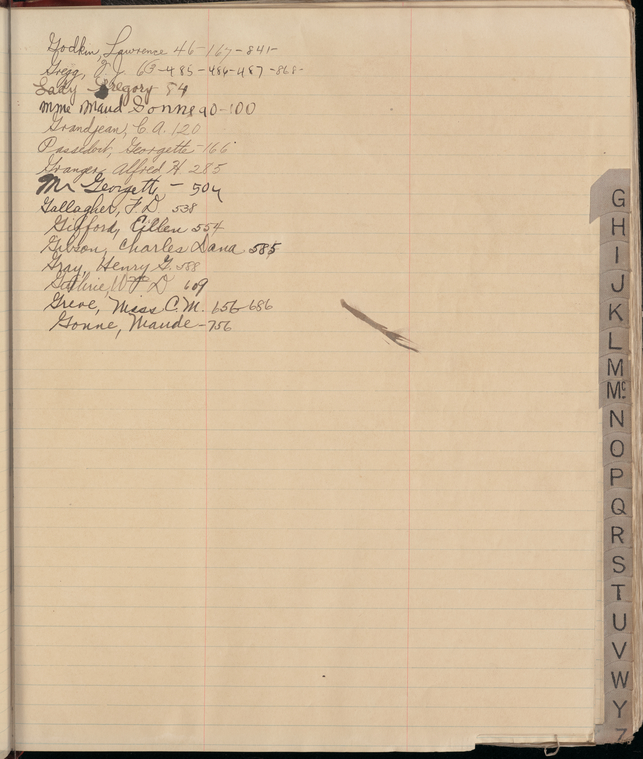 Godkin, Lawrence 46-167-841-
Gregg, F.J. 63-485-486-487-868-
Lady Gregory 54
Mme Maud Gonne 90-100
Grandjean, C.A. 120
Passedoit, Georgette-166
Granger, Alfred H. 285
Mr Georgett - 504
Gallagher, F.D. 538
Gifford, Eillen 554
Gibson, Charles Dana 585
Gray, Henry G. 588
Guthrie, W D 609
Greve, Miss C.M. 656-686
Gonne, Maude-756
G
H
I
J
K
L
M
Mc
N
O
P
Q
R
S
T
U
V
W
Y
Z